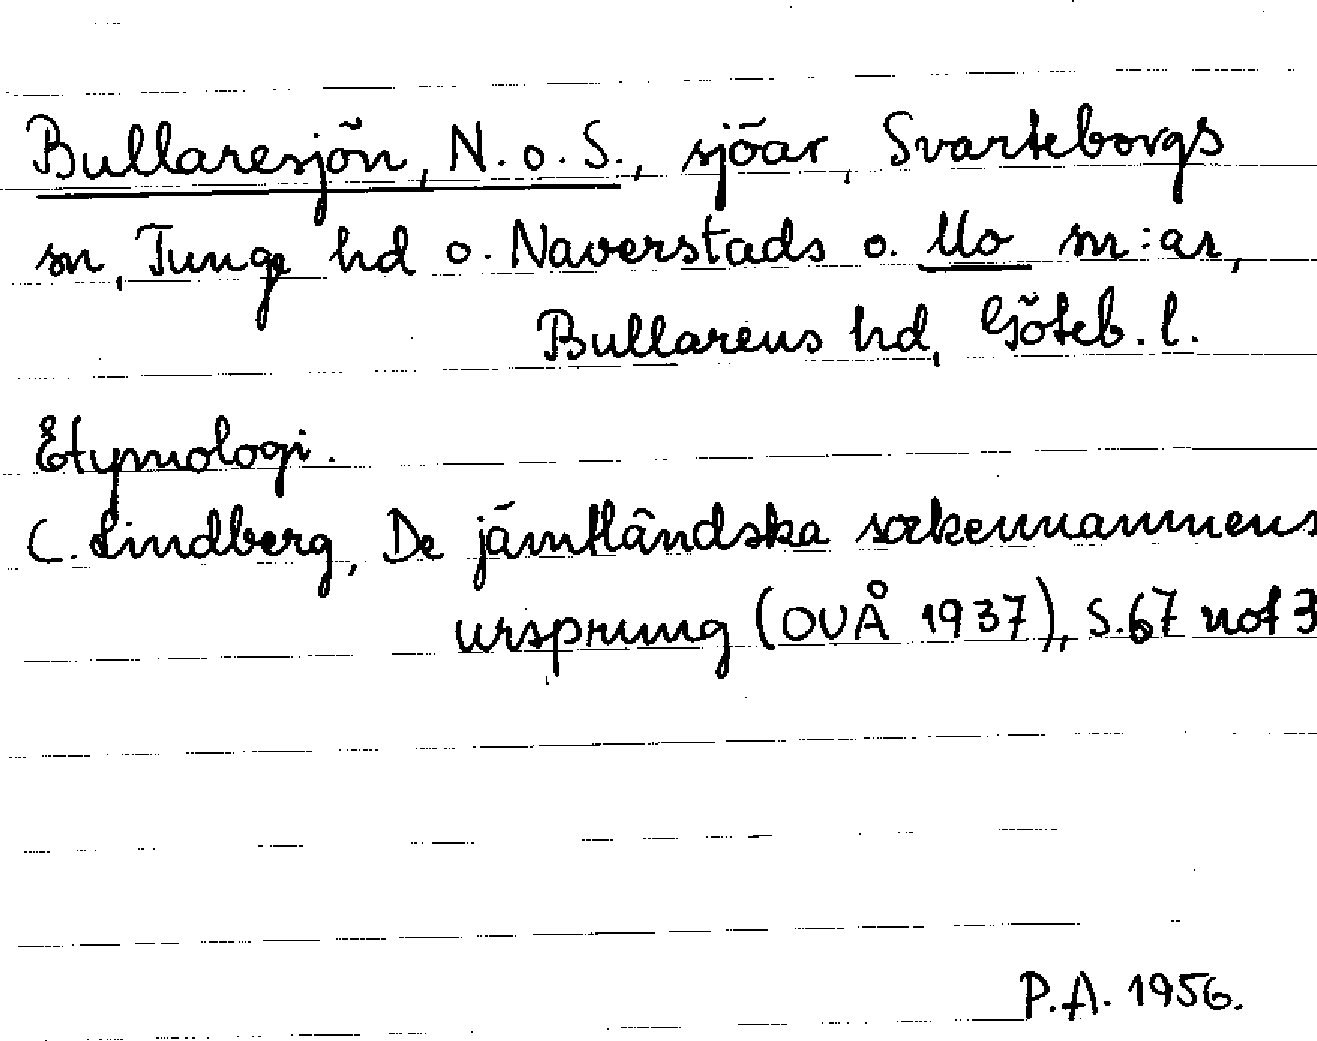 Bullaresjön, N. o. S., sjöar, Svarteborgs
sn, Tunge hd o. Naverstads o. Mo sn:ar,
Bullarens hd, Göteb. l.
Etymologi.
C. Lindberg, De jämtländska sockennamnens
ursprung (OUÅ 1937), S. 67 not 3
P.A. 1956.